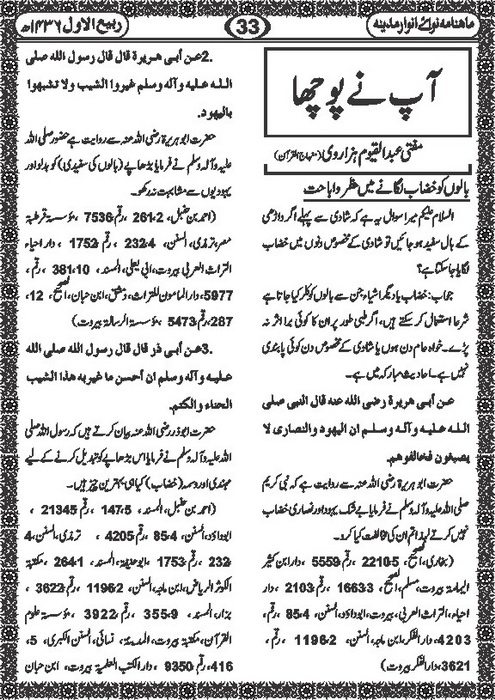 ماہنامہ نوائے انوار مدینہ
33
ربیع الاول ۱۴۳۶ھ
آپ نے پوچھا
مفتی عبدالقیوم ہزاروی (منہاج القرآن)
بالوں کو خضاب لگانے میں حظر و اباحت
السلام علیکم میرا سوال یہ ہے کہ شادی سے پہلے اگر داڑھی
کے بال سفید ہو جائیں تو شادی کے مخصوص دنوں میں خضاب
لگایا جا سکتا ہے؟
جواب: خضاب یا دیگر اشیاء جن سے بالوں کو کلر کیا جاتا ہے
شرعا استعمال کر سکتے ہیں، اگر طبی طور پر ان کا کوئی برا اثر نہ
پڑے۔ خواہ عام دن ہوں یا شادی کے مخصوص دن کوئی پابندی
نہیں ہے۔ احادیث مبارکہ میں ہے۔
عن أبى هريرة رضى الله عنه قال النبى صلى
الله عليه وآله وسلم ان اليهود والنصارى لا
يصبغون فخالفوهم
حضرت ابو ہریرۃ رضی اللہ عنہ سے روایت ہے کہ نبی کریم
صلی اللہ علیہ وآلہ وسلم نے فرمایا بے شک یہود اور نصاری خضاب
نہیں کرتے لہذا تم ان کی مخالفت کیا کرو۔
(بخاری، الصحیح، 5:2210، رقم 5559، دار ابن کثیر
الیمامۃ بیروت، مسلم، الصحیح، 3:1663، رقم 2103، دار
احیاء التراث العربی، بیروت، ابو داؤد، السنن، 4:85، رقم،
4203، دار الفکر، ابن ماجہ، السنن، 2:1196، رقم،
3621، دار الفکر بیروت)
2۔عن أبى هريرة قال قال رسول الله صلى
الله عليه وآله وسلم غيروا الشيب ولا تشبهوا
باليهود.
حضرت ابو ہریرۃ رضی اللہ عنہ سے روایت ہے حضور صلی اللہ
علیہ وآلہ وسلم نے فرمایا بڑھاپے (بالوں کی سفیدی) کو بدلو اور
یہودیوں سے مشابہت نہ رکھو۔
(احمد بن حنبل، 2:261، رقم، 7536، مؤسسۃ قرطبۃ
مصر، ترمذی، السنن، 4:232، رقم 1752، دار احیاء
التراث العربی بیروت، ابی یعلی، المسند، 10:381، رقم،
5977، دار المامون للتراث، دمشق، ابن حبان، الصحیح، 12،
287، رقم، 5473، مؤسسۃ الرسالۃ بیروت)
3۔عن أبى ذر قال قال رسول الله صلى الله
عليه وآله وسلم ان أحسن ما غير به هذا الشيب
الحناء والكتم.
حضرت ابوذر رضی اللہ عنہ بیان کرتے ہیں کہ رسول اللہ صلی
اللہ علیہ وآلہ وسلم نے فرمایا اس بڑھاپے کو تبدیل کرنے کے لیے
مہندی اور وسمہ (خضاب) کیا ہی بہترین چیز ہیں۔
(احمد بن حنبل، المسند، 5:147، رقم، 21345،
ابو داؤد، السنن، 4:85، رقم 4205، ترمذی، السنن، 4
:232، رقم، 1753، ابو حنیفۃ، المسند، 1:264، مکتبۃ
الکوثر الریاض، ابن ماجہ، السنن، 2:1196، رقم، 3622،
بزار، المسند، 9:355، رقم، 3922، مؤسسۃ علوم
القرآن، مکتبۃ بیروت، المدینۃ، نسائی، السنن الکبری، 5،
416، رقم 9350، دار الکتب العلمیۃ بیروت، ابن حبان